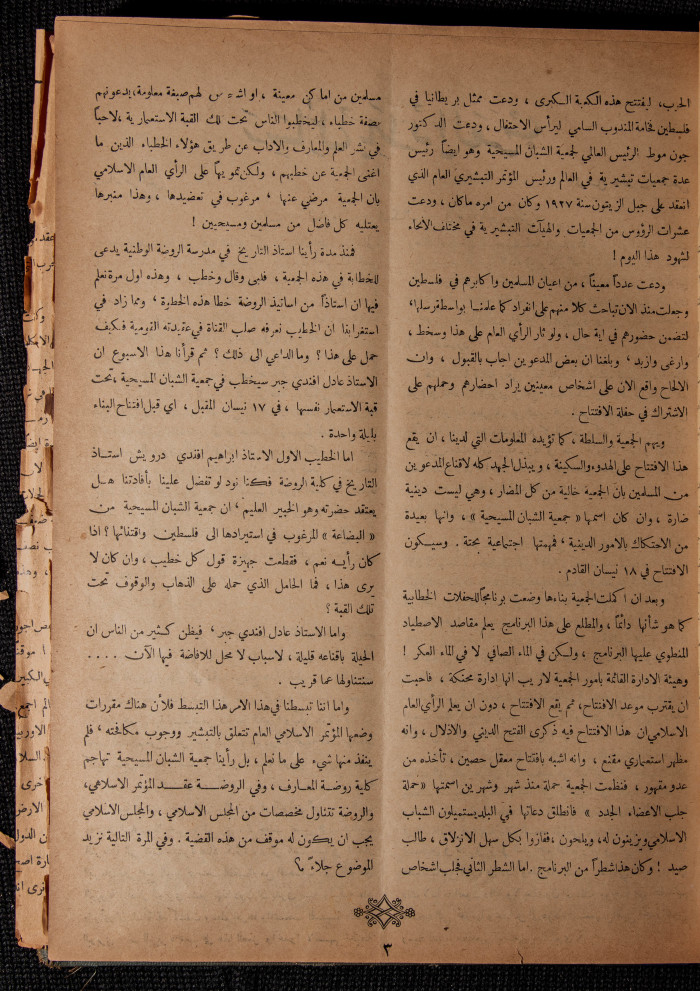 الحرب، ليفتتح هذه الكعبة الكبرى، ودعت ممثل بريطانيا في
فلسطين فخامة المندوب السامي ليرأس الاحتفال، ودعت الدكتور
جون موط الرئيس العالي لجمعية الشبان المسيحية وهو ايضاً رئيس
عدة جمعيات تبشيرية في العالم ورئيس المؤتمر التبشيري العام الذي
انعقد على جبل الزيتون سنة ١٩٢٧ وكان من امره ماكان، ودعت
عشرات الرؤوس من الجمعيات والهيآت التبشيرية في مختلف الأنحاء
لشهود هذا اليوم!
ودعت عدداً معيناً، من اعيان المسلمين واكابرهم في فلسطين
وجعلت منذ الان تباحث كلا منهم على انفراد كما علمنا بواسطة رسلها،
لتضمن حضورهم في اية حال، ولو ثار الرأي العام على هذا وسخط،
وارغى وازبد، وبلغنا ان بعض المدعوين اجاب بالقبول، وان
الالحاح واقع الان على اشخاص معينين يراد احضارهم وحملهم على
الاشتراك في حفلة الافتتاح.
ويهم الجمعية والسلطة، كما تؤيده المعلومات التي لدينا، ان يقع
هذا الافتتاح على الهدوء والسكينة، ويبذل الجهد كله لاقناع المدعوين
من المسلمين بان الجمعية خالية من كل المضار، وهي ليست دينية
ضارة، وان كان اسمها «جمعية الشبان المسيحية»، وانها بعيدة
من الاحتكاك بالامور الدينية، فمهمتها اجتماعية بحتة. وسيكون
الافتتاح في ١٨ نيسان القادم.
وبعد ان اكملت الجمعية بناءها وضعت برنامجاً للحفلات الخطابية
كما هو شأنها دائماً، والمطلع على هذا البرنامج يعلم مقاصد الاصطياد
المنطوي عليها البرنامج، ولكن في الماء الصافي لا في الماء العكر!
وهيئة الادارة القائمة بامور الجمعية لاريب انها ادارة محنكة، فاحبت
ان يقترب موعد الافتتاح، ثم يقع الافتتاح، دون ان يعلم الرأي العام
الاسلامي ان هذا الافتتاح فيه ذكرى الفتح الديني والاذلال، وانه
مظهر استعماري مقنع، وانه اشبه بافتتاح معقل حصين، تأخذه من
عدو مقهور، فنظمت الجمعية حملة منذ شهر وشهرين اسمتها «حملة
جلب الاعضاء الجدد» فانطلق دعاتها في البلد يستميلون الشباب
الاسلامي ويزينون له، ويلحون، ففازوا بكل سهل الانزلاق، طالب
صيد! وكان هذا شطراً من البرنامج. اما الشطر الثاني فجلب اشخاص
مسلمين من اماكن معينة، او اشخاص لهم صبغة معلومة، يدعونهم
بصفة خطباء، ليخطبوا الناس تحت تلك القبة الاستعمارية، لاحباً
في نشر العلم والمعارف والاداب عن طريق هؤلاء الخطباء الذين ما
اغنى الجمعية عن خطبهم، ولكن تمويهاً على الرأي العام الاسلامي
بان الجمعية مرضي عنها، مرغوب في تعضيدها، وهذا منبرها
يعتليه كل فاضل من مسلمين ومسيحيين!
فمنذ مدة رأينا استاذ التاريخ في مدرسة الروضة الوطنية يدعى
للخطابة في هذه الجمعية، فلبى وقال وخطب، وهذه اول مرة نعلم
فيها ان استاذاً من اساتيذ الروضة خطا هذه الخطوة، ومما زاد في
استغرابنا ان الخطيب نعرفه صلب القناة في عقيدته القومية فكيف
حمل على هذا؟ وما الداعي الى ذلك؟ ثم قرآنا هذا الاسبوع ان
الاستاذ عادل افندي جبر سيخطب في جمعية الشبان المسيحية، تحت
قبة الاستعمار نفسها، في ١٧ نيسان المقبل، اي قبل افتتاح البناء
بليلة واحدة.
اما الخطيب الاول الاستاذ ابراهيم افندي درويش استاذ
التاريخ في كلية الروضة فكنا نود لو تفضل علينا بأفادتنا هل
يعتقد حضرته وهو الخبير العليم، ان جمعية الشبان المسيحية من
«البضاعة» المرغوب في استيرادها الى فلسطين واقتنائها؟ اذا
كان رأيه نعم، فقطعت جهيزة قول كل خطيب، وان كان لا
يرى هذا، فما الحامل الذي حمله على الذهاب والوقوف تحت
تلك القبة؟
واما الاستاذ عادل افندي جبر، فيظن كثير من الناس ان
الحيلة باقناعه قليلة، لاسباب لا محل للافاضة فيها الآن ....
سنتناولها عما قريب.
واما اننا تبسطنا في هذا الامر هذا التبسط فلأن هناك مقررات
وضعها المؤتمر الاسلامي العام تتعلق بالتبشير ووجوب مكافحته، فلم
ينفذ منها شيء على ما نعلم، بل رأينا جمعية الشبان المسيحية تهاجم
كلية روضة المعارف، وفي الروضة عقد المؤتمر الاسلامي،
والروضة تتناول مخصصات من المجلس الاسلامي، والمجلس الاسلامي
يجب ان يكون له موقف من هذه القضية. وفي المرة التالية نزيد
الموضوع جلاءً م؟
٣